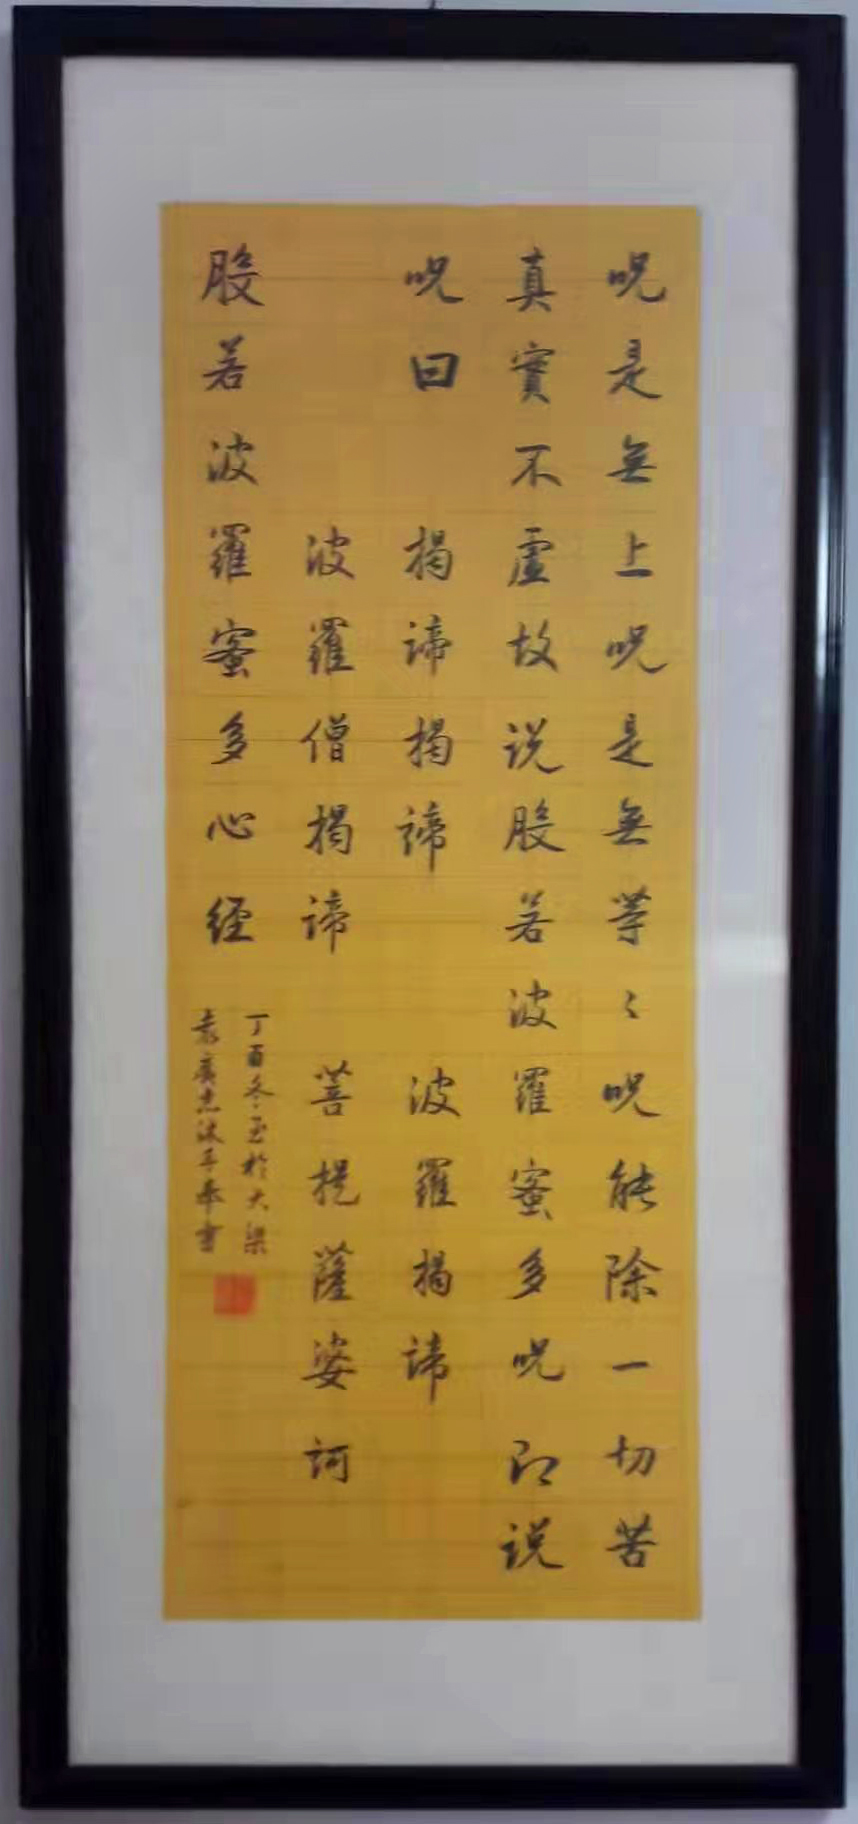 呪是無上呪是無等々呪能除一切苦
真實不虛故说般若波羅蜜多呪即说
呪曰 揭諦揭諦 波羅揭諦
波羅僧揭諦 菩提薩婆訶
般若波羅蜜多心経
丁酉冬玉於大梁
袁廣忠沐手奉書